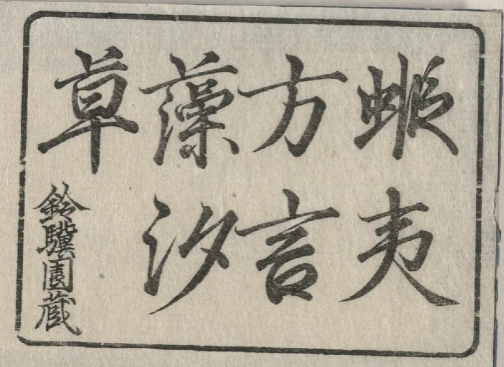 蝦夷
方言
藻汐
草
鈴驥園蔵